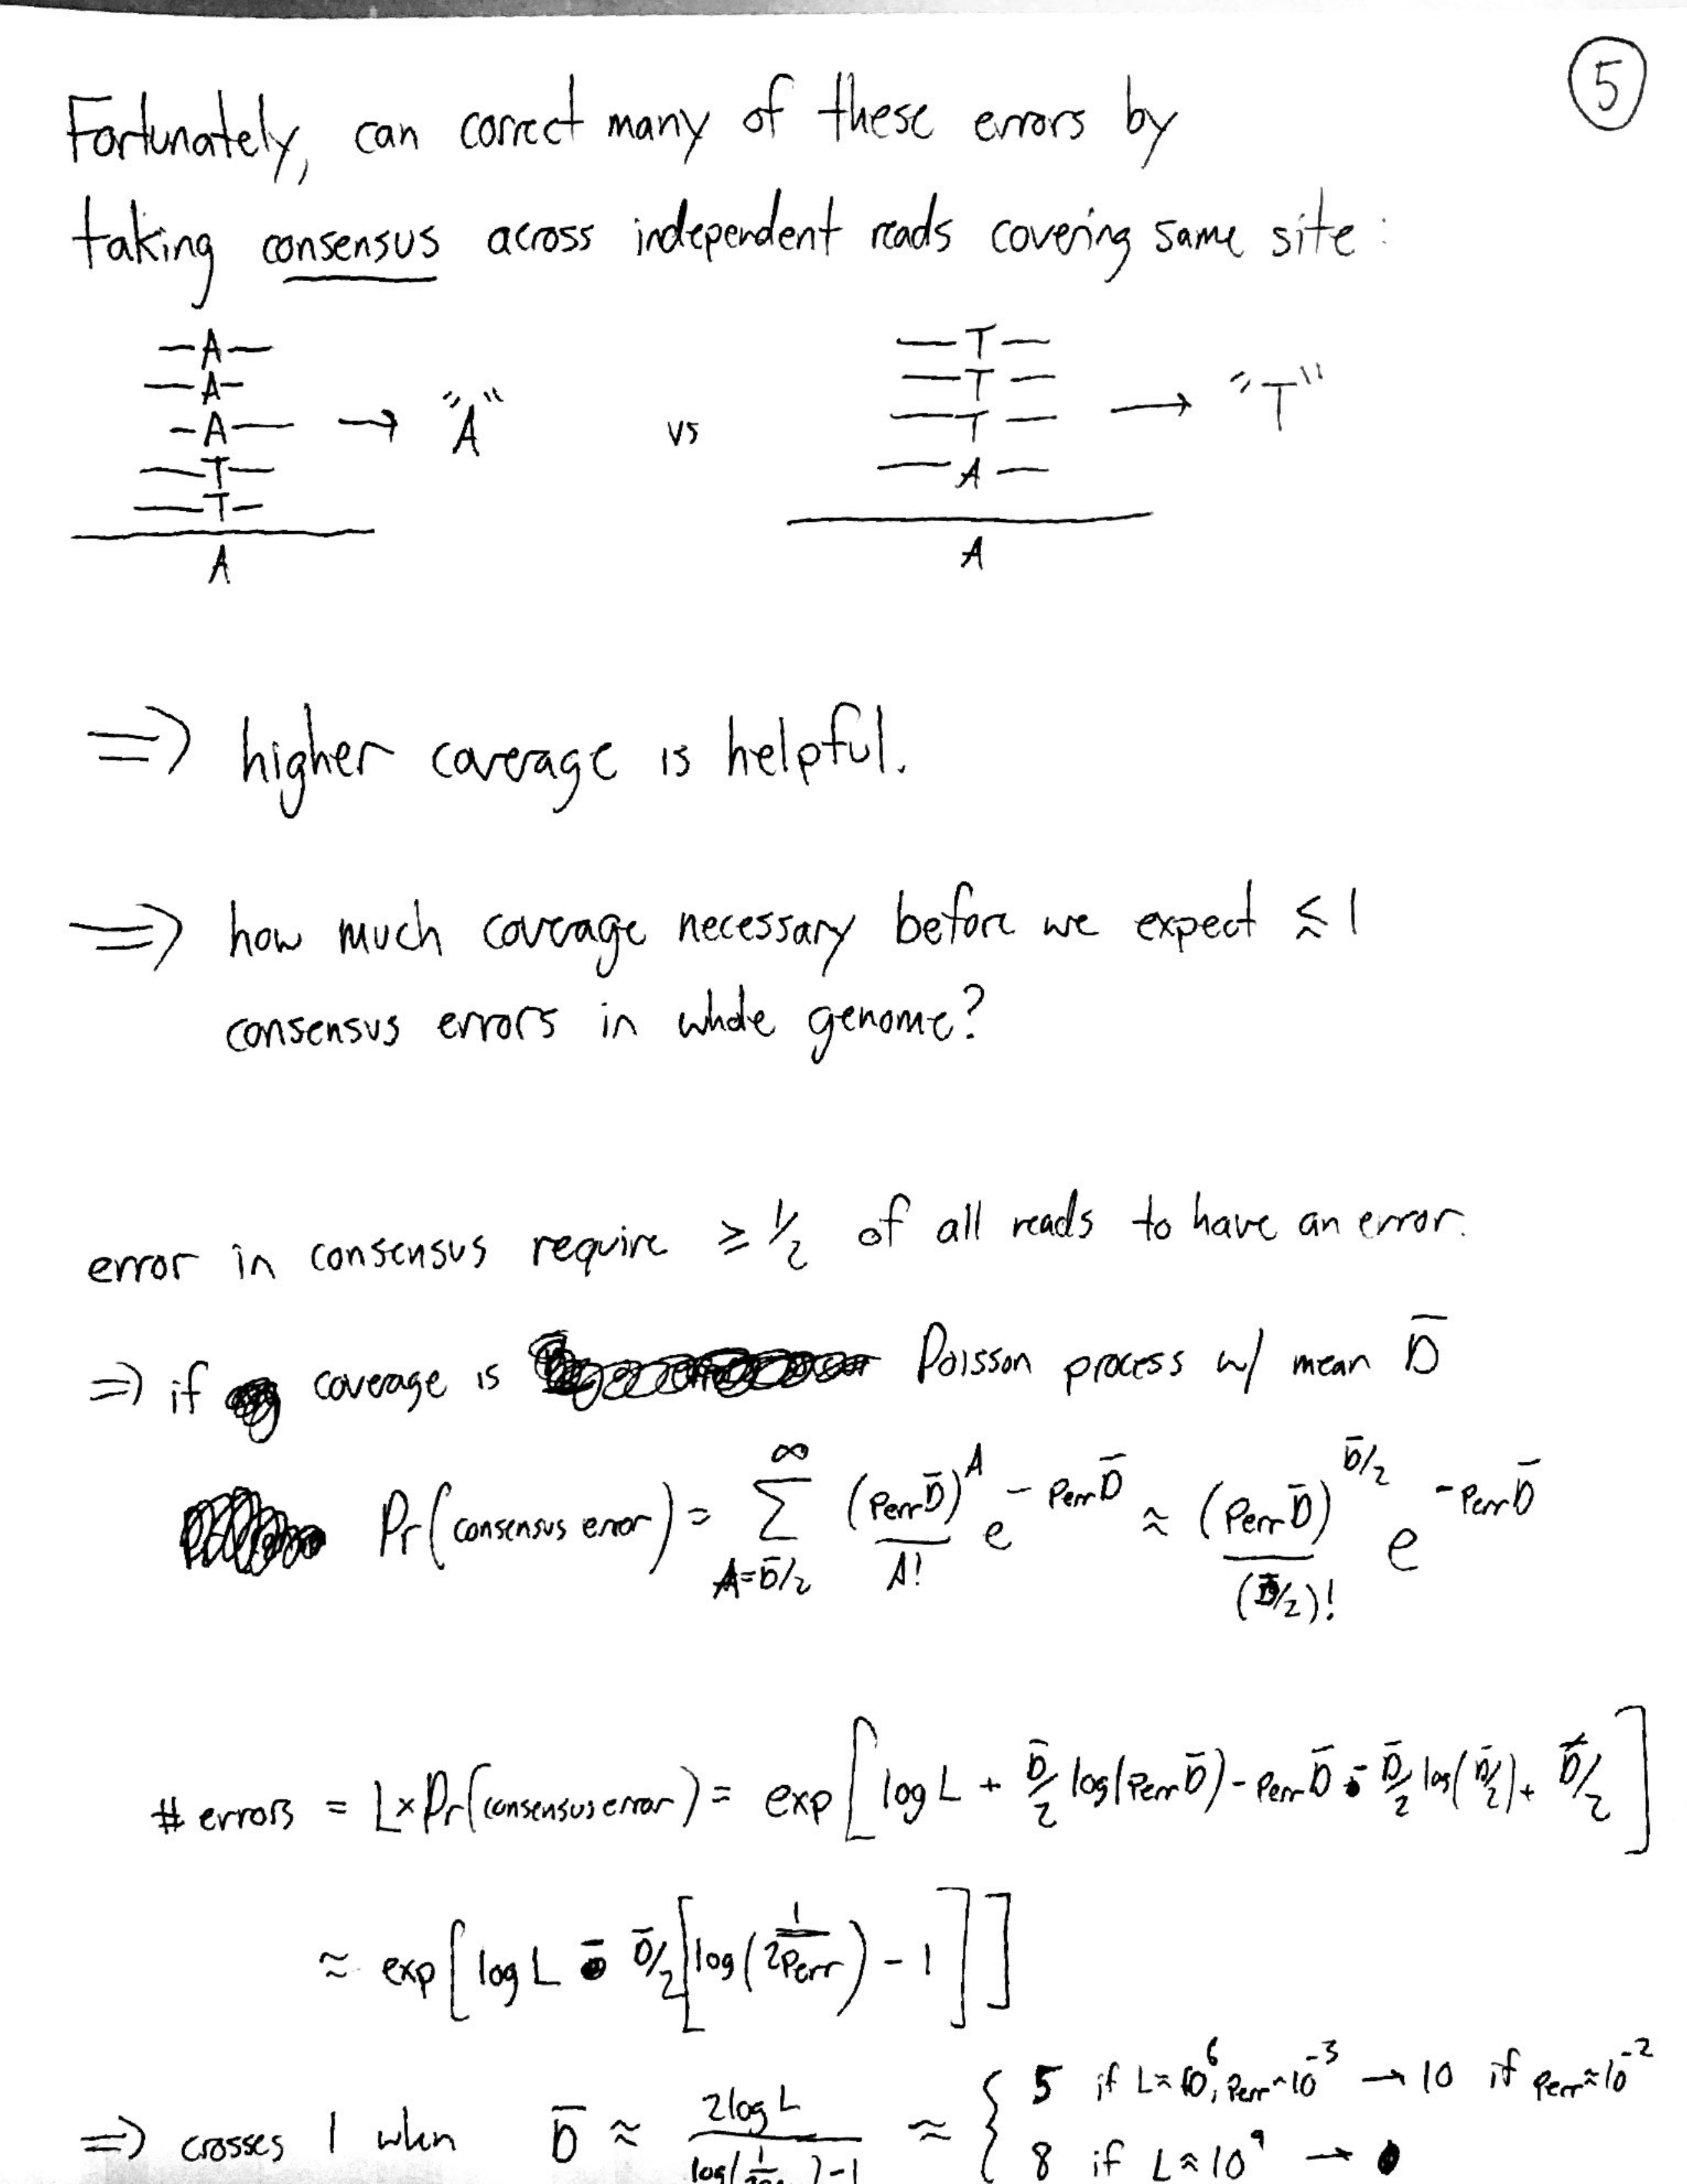 5
Fortunately, can correct many of these errors by
taking consensus across independent reads covering same site:
—A—
—A—
—A—
—T—
—T—
A
→ "A"
vs
—T—
—T—
—T—
—A—
A
→ "T"
⇒ higher coverage is helpful.
⇒ how much coverage necessary before we expect ≲ 1
consensus errors in whole genome?
error in consensus require ≥ 1/2 of all reads to have an error.
⇒ if coverage is Poisson process w/ mean D̄
Pr(consensus error) = ∑_{A=D̄/2}^{∞} (perr D̄)^A / A! e^{-perr D̄} ≈ (perr D̄)^{D̄/2} / (D̄/2)! e^{-perr D̄}
# errors = L × Pr(consensus error) = exp[ log L + D̄/2 log(perr D̄) - perr D̄ - D̄/2 log(D̄/2) + D̄/2 ]
≈ exp[ log L - D̄/2 [ log( 1/2perr ) - 1 ] ]
⇒ crosses 1 when D̄ ≈ 2 log L / log( 1/ ) - 1 ≈ { 5 if L≈10^6, perr~10^-3 → 10 if perr≈10^-2
8 if L≈10^9 →